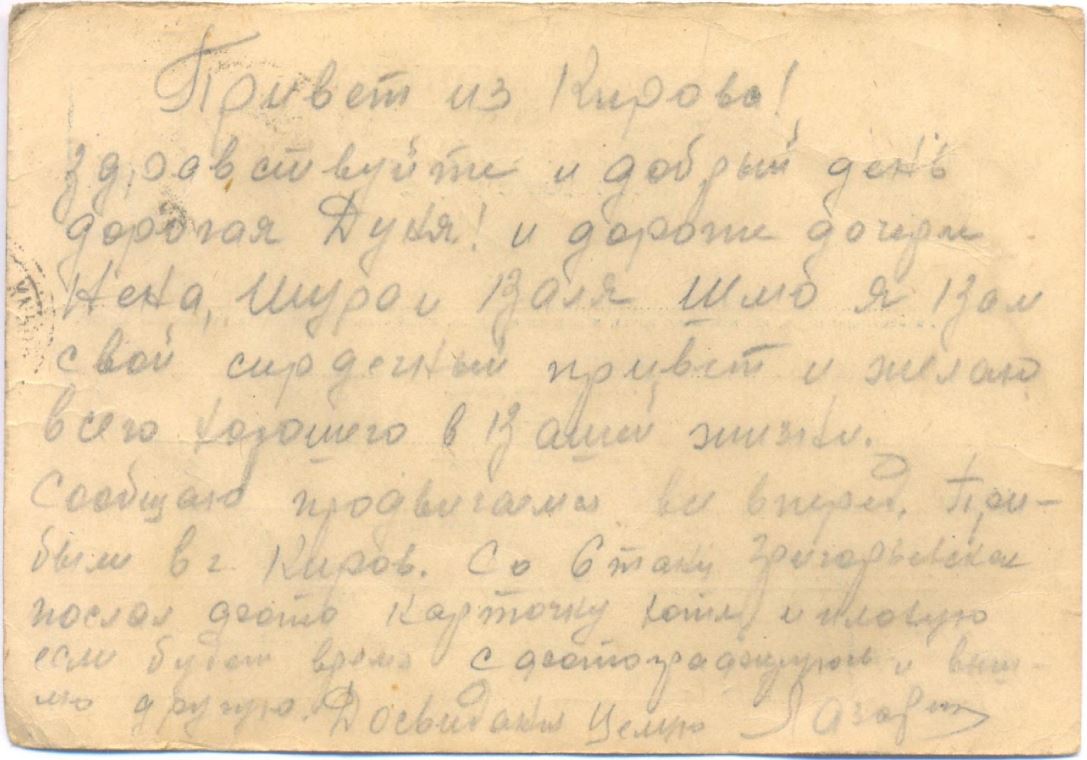 Привет из Кирова!
Здравствуйте и добрый день
дорогая Дуня! и дороже дочери
Нена, Шура и Валя Шлю я Вам
свой сирдечный привет и желаю
всего хорошего в Вашей жизни.
Сообщаю продвигаемся вперед. При-
были в г. Киров. Со
послал фото карточку хотя и плохую
если будет время сфотографируюсь и выш-
лю другую. Досвидания Целую